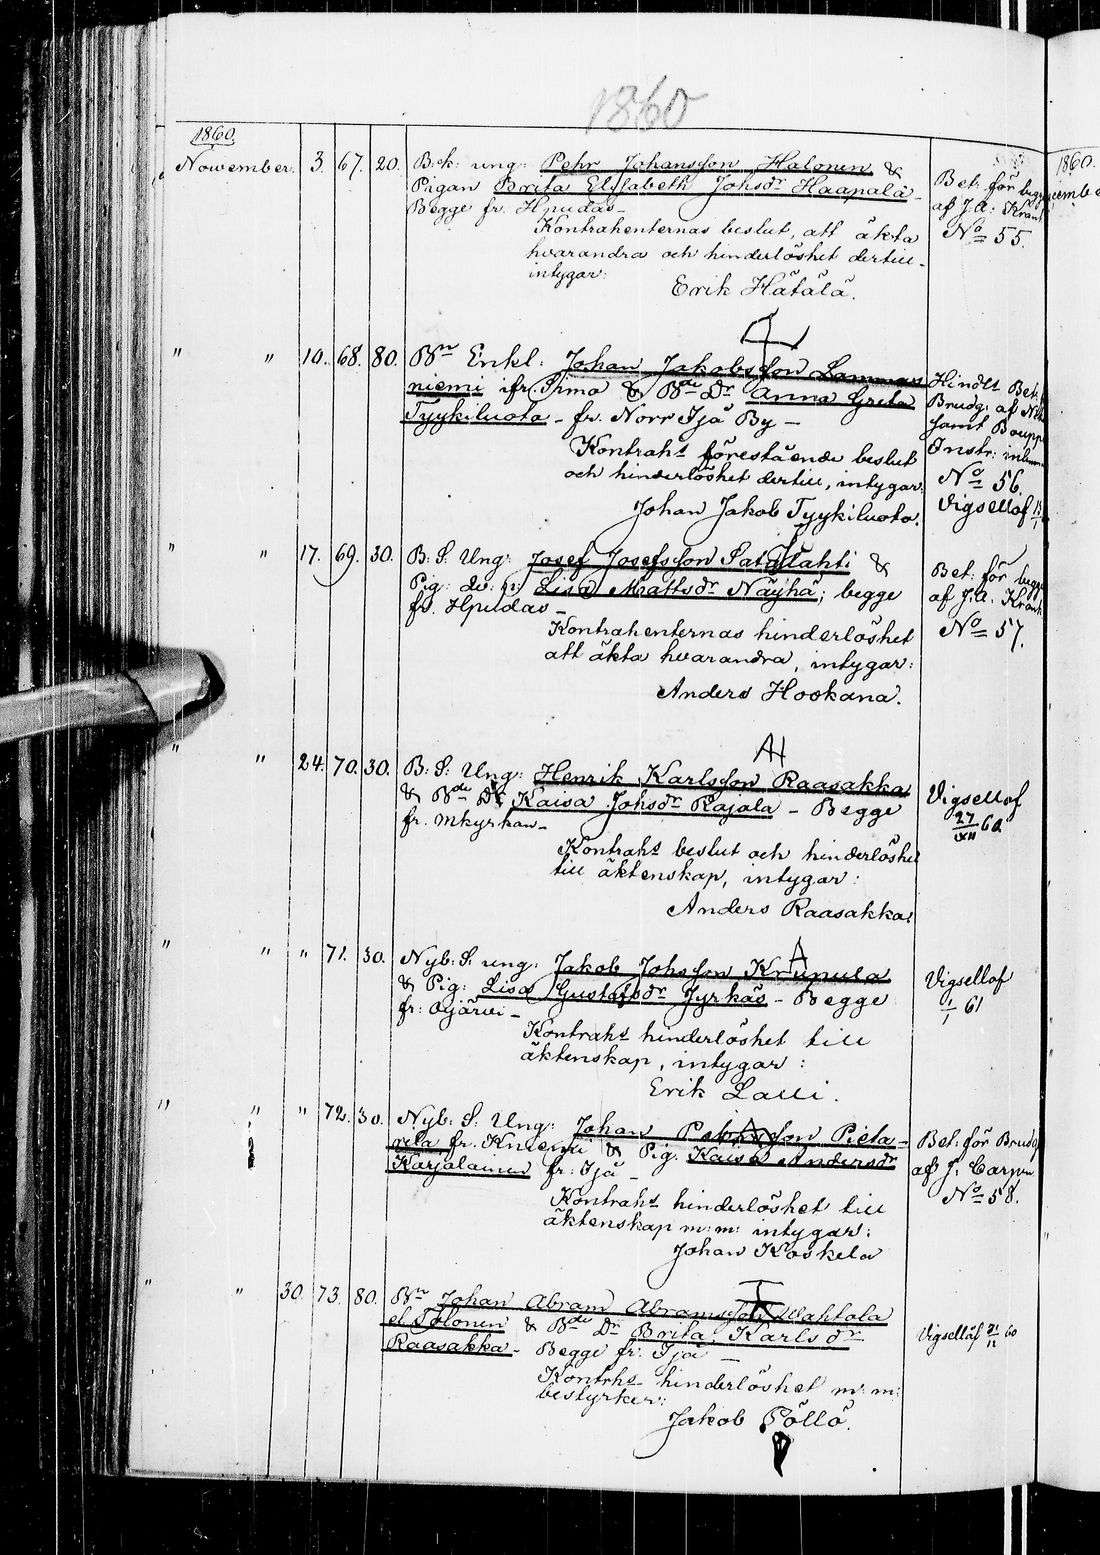 1860
1860.
Nowember. 3. 67. 20. B: k: ung: Pehr Johansson Halonen &
Pigan Brita Elisabeth Johsdr Haapala -
Begge fr. Hpudas -
Kontrahenternas beslut, att äkta
hvarandra och hinderlöshet dertill -
intygar:
Erik Hätälä.
Bet: för begge
af J. A:
No 55.
" " 10. 68. 80. Bn Enkl: Johan Jakobsson Lamman
niemi ifr. Simo & Bde Dr Anna Greta
Tyykiluoto - fr. Norr Ijå By -
Kontrahs förestående beslut
och hinderlöshet dertill, intygar:
Johan Jakob Tyykiluoto.
Hindls Bet:
Brudg: af
samt Boupp
Instr:
No 56.
Vigsellaf
" " 17. 69. 30. B: S: Ung: Josef Josefsson Satalahti &
Pig: Lisa Mattsdr Näyhä; begge
fr. Hpudas -
Kontrahenternas hinderlöshet
att äkta hvarandra, intygar:
Anders Hookana.
Bet: för begge
af J. A.
No 57.
" " 24. 70. 30. B: S: Ung: Henrik Karlsson Raasakka
& Bde Dr Kaisa Johsdr Rajala - Begge
fr. Mkyrkan -
Kontrahs beslut och hinderlöshet
till äktenskap, intygar:
Anders Raasakka.
Vigsellaf
" " " 71. 30. Nyb: S: ung: Jakob Johsson Krunula
& Pig: Lisa Gustafsdr Jyrkäs - Begge
fr: Ojärvi -
Kontrahs hinderlöshet till
äktenskap, intygar:
Erik Lalli.
Vigsellaf
1/1 61
" " " 72. 30. Nyb: S: Ung: Johan Petersson Pieta-
rila fr. Kniemi & Pig. Kaisa Andersdr
Karjalainen fr: Ijå -
Kontrahs hinderlöshet till
äktenskap m: m: intygar:
Johan Koskela
Bet: för Brudg
af J.
No 58.
" " 30. 73. 80. Bn Johan Abram Abramsson Wahtola
el Tolonen & Bde Dr Brita Karlsdr
Raasakka - Begge fr. Ijå -
Kontrhs hinderlöshet m: m:
bestyrker:
Jakob Pöllö.
Vigsellaf
1860.